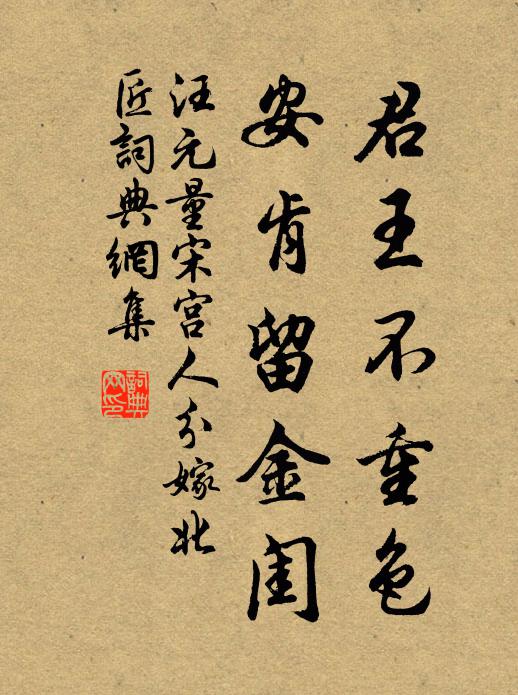 君王不重色
安肯留金闺
汪元量宋宫人分嫁北
匠詞典網集
詞典
网印